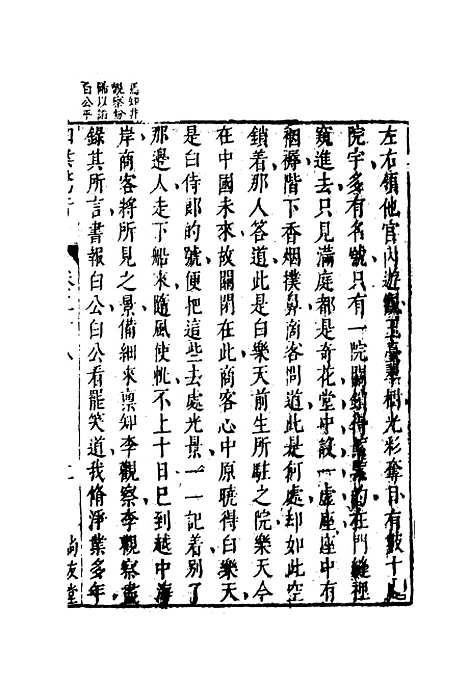 馬知非
觀察粉
飾以諂
白公乎
左右領他宮內遊觀玉臺翠樹光彩奪目有數十
院宇多有名號只有一院關鎖得緊緊的在門縫裡
窺進去只見滿庭都是奇花堂中設一虛座座中有
裀褥階下香烟撲鼻商客問道此是何處却如此空
鎖着那人答道此是白樂天前生所駐之院樂天今
在中國未來故關閉在此商客心中原曉得白樂天
是白侍郎的號便把這些去處光景一一記着別了
那邊人走下船來隨風使帆不上十日已到越中海
岸商客將所見之景備細來稟知李觀察李觀察盡
錄其所言書報白公白公看罷笑道我脩淨業多年
卷二十八
二
尚友堂